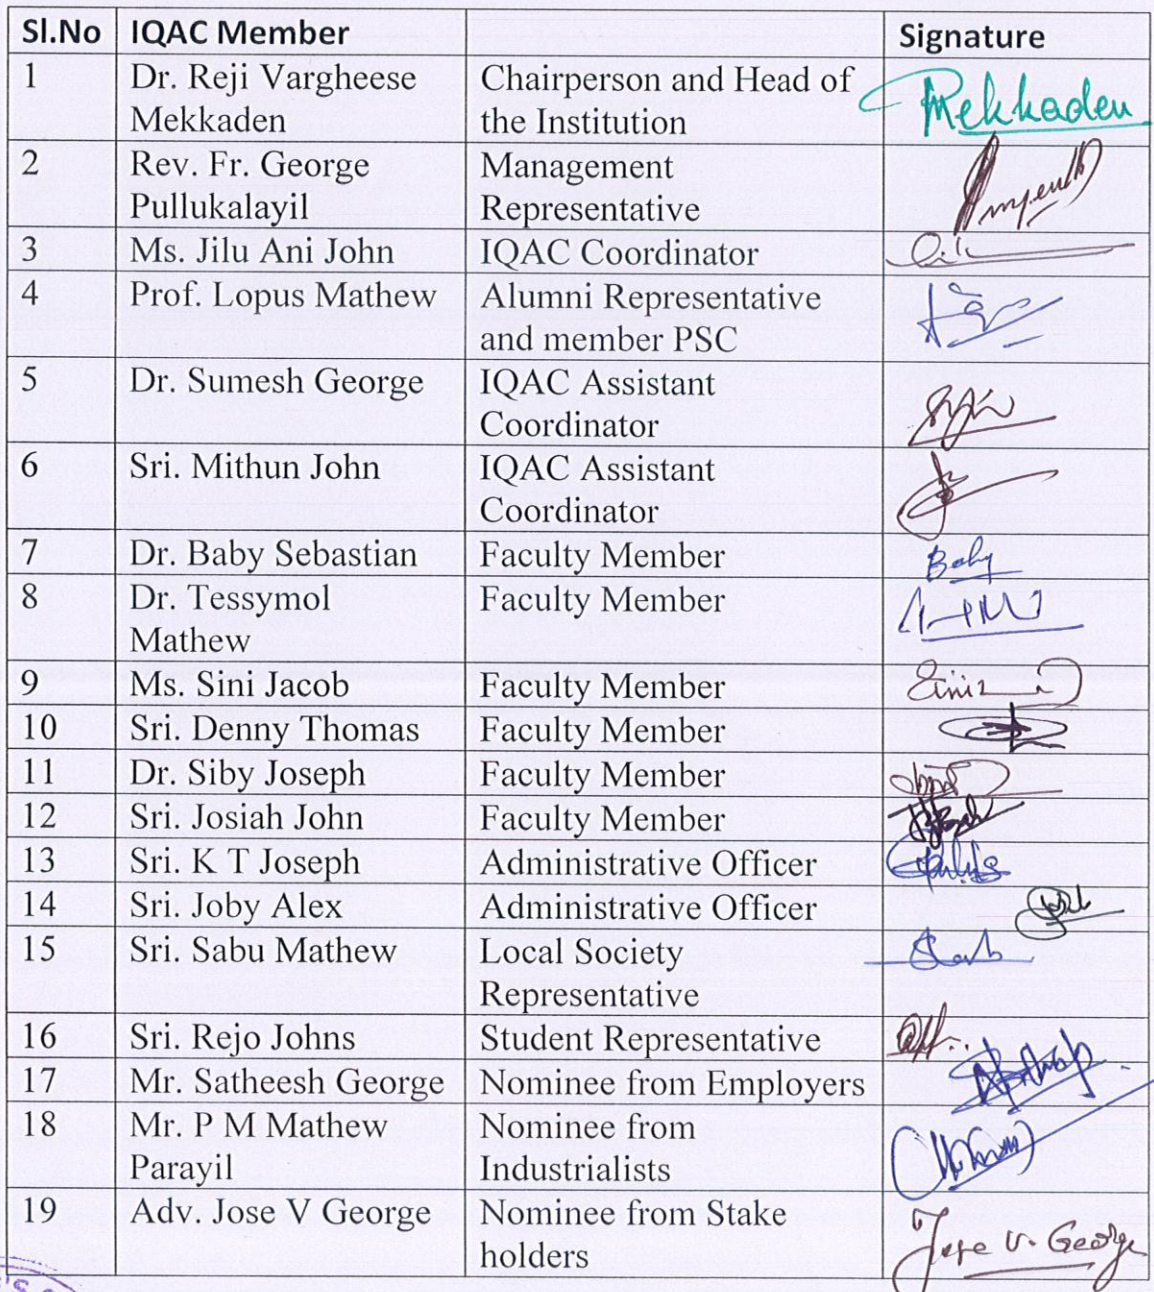 Sl.No IQAC Member Signature
1 Dr. Reji Vargheese Chairperson and Head of
Mekkaden the Institution Mekkaden
2 Rev. Fr. George Management
Pullukalayil Representative
3 Ms. Jilu Ani John IQAC Coordinator
4 Prof. Lopus Mathew Alumni Representative
and member PSC
5 Dr. Sumesh George IQAC Assistant
Coordinator
6 Sri. Mithun John IQAC Assistant
Coordinator
7 Dr. Baby Sebastian Faculty Member Baby
8 Dr. Tessymol Faculty Member
Mathew
9 Ms. Sini Jacob Faculty Member
10 Sri. Denny Thomas Faculty Member
11 Dr. Siby Joseph Faculty Member
12 Sri. Josiah John Faculty Member
13 Sri. K T Joseph Administrative Officer
14 Sri. Joby Alex Administrative Officer
15 Sri. Sabu Mathew Local Society
Representative
16 Sri. Rejo Johns Student Representative
17 Mr. Satheesh George Nominee from Employers
18 Mr. P M Mathew Nominee from
Parayil Industrialists
19 Adv. Jose V George Nominee from Stake
holders Jose V. George